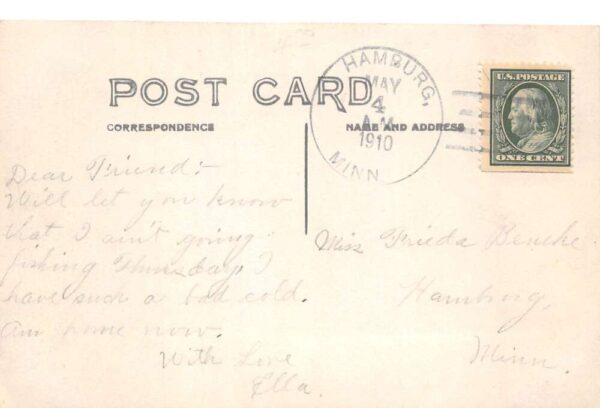 POST CARD
CORRESPONDENCE
NAME AND ADDRESS
HAMBURG,
MAY
4
A.M.
1910
MINN
U.S. POSTAGE
ONE CENT
Dear Friend:-
Will let you know
that I ain't going
fishing Thursday I
have such a bad cold.
Am home now.
With Love
Ella.
Miss Frieda
Hamburg,
Minn.